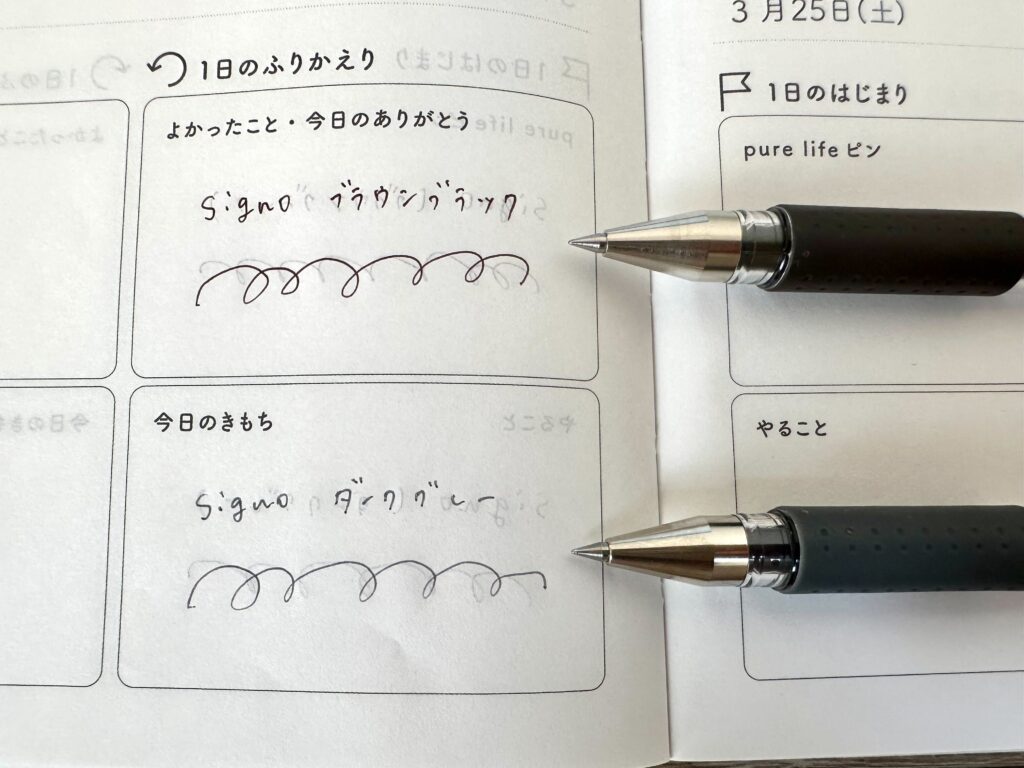 1日のふりかえり
よかったこと・今日のありがとう
Signo ブラウンブラック
今日のきもち
Signo ダークグレー
3月25日(土)
1日のはじまり
pure lifeピン
やること